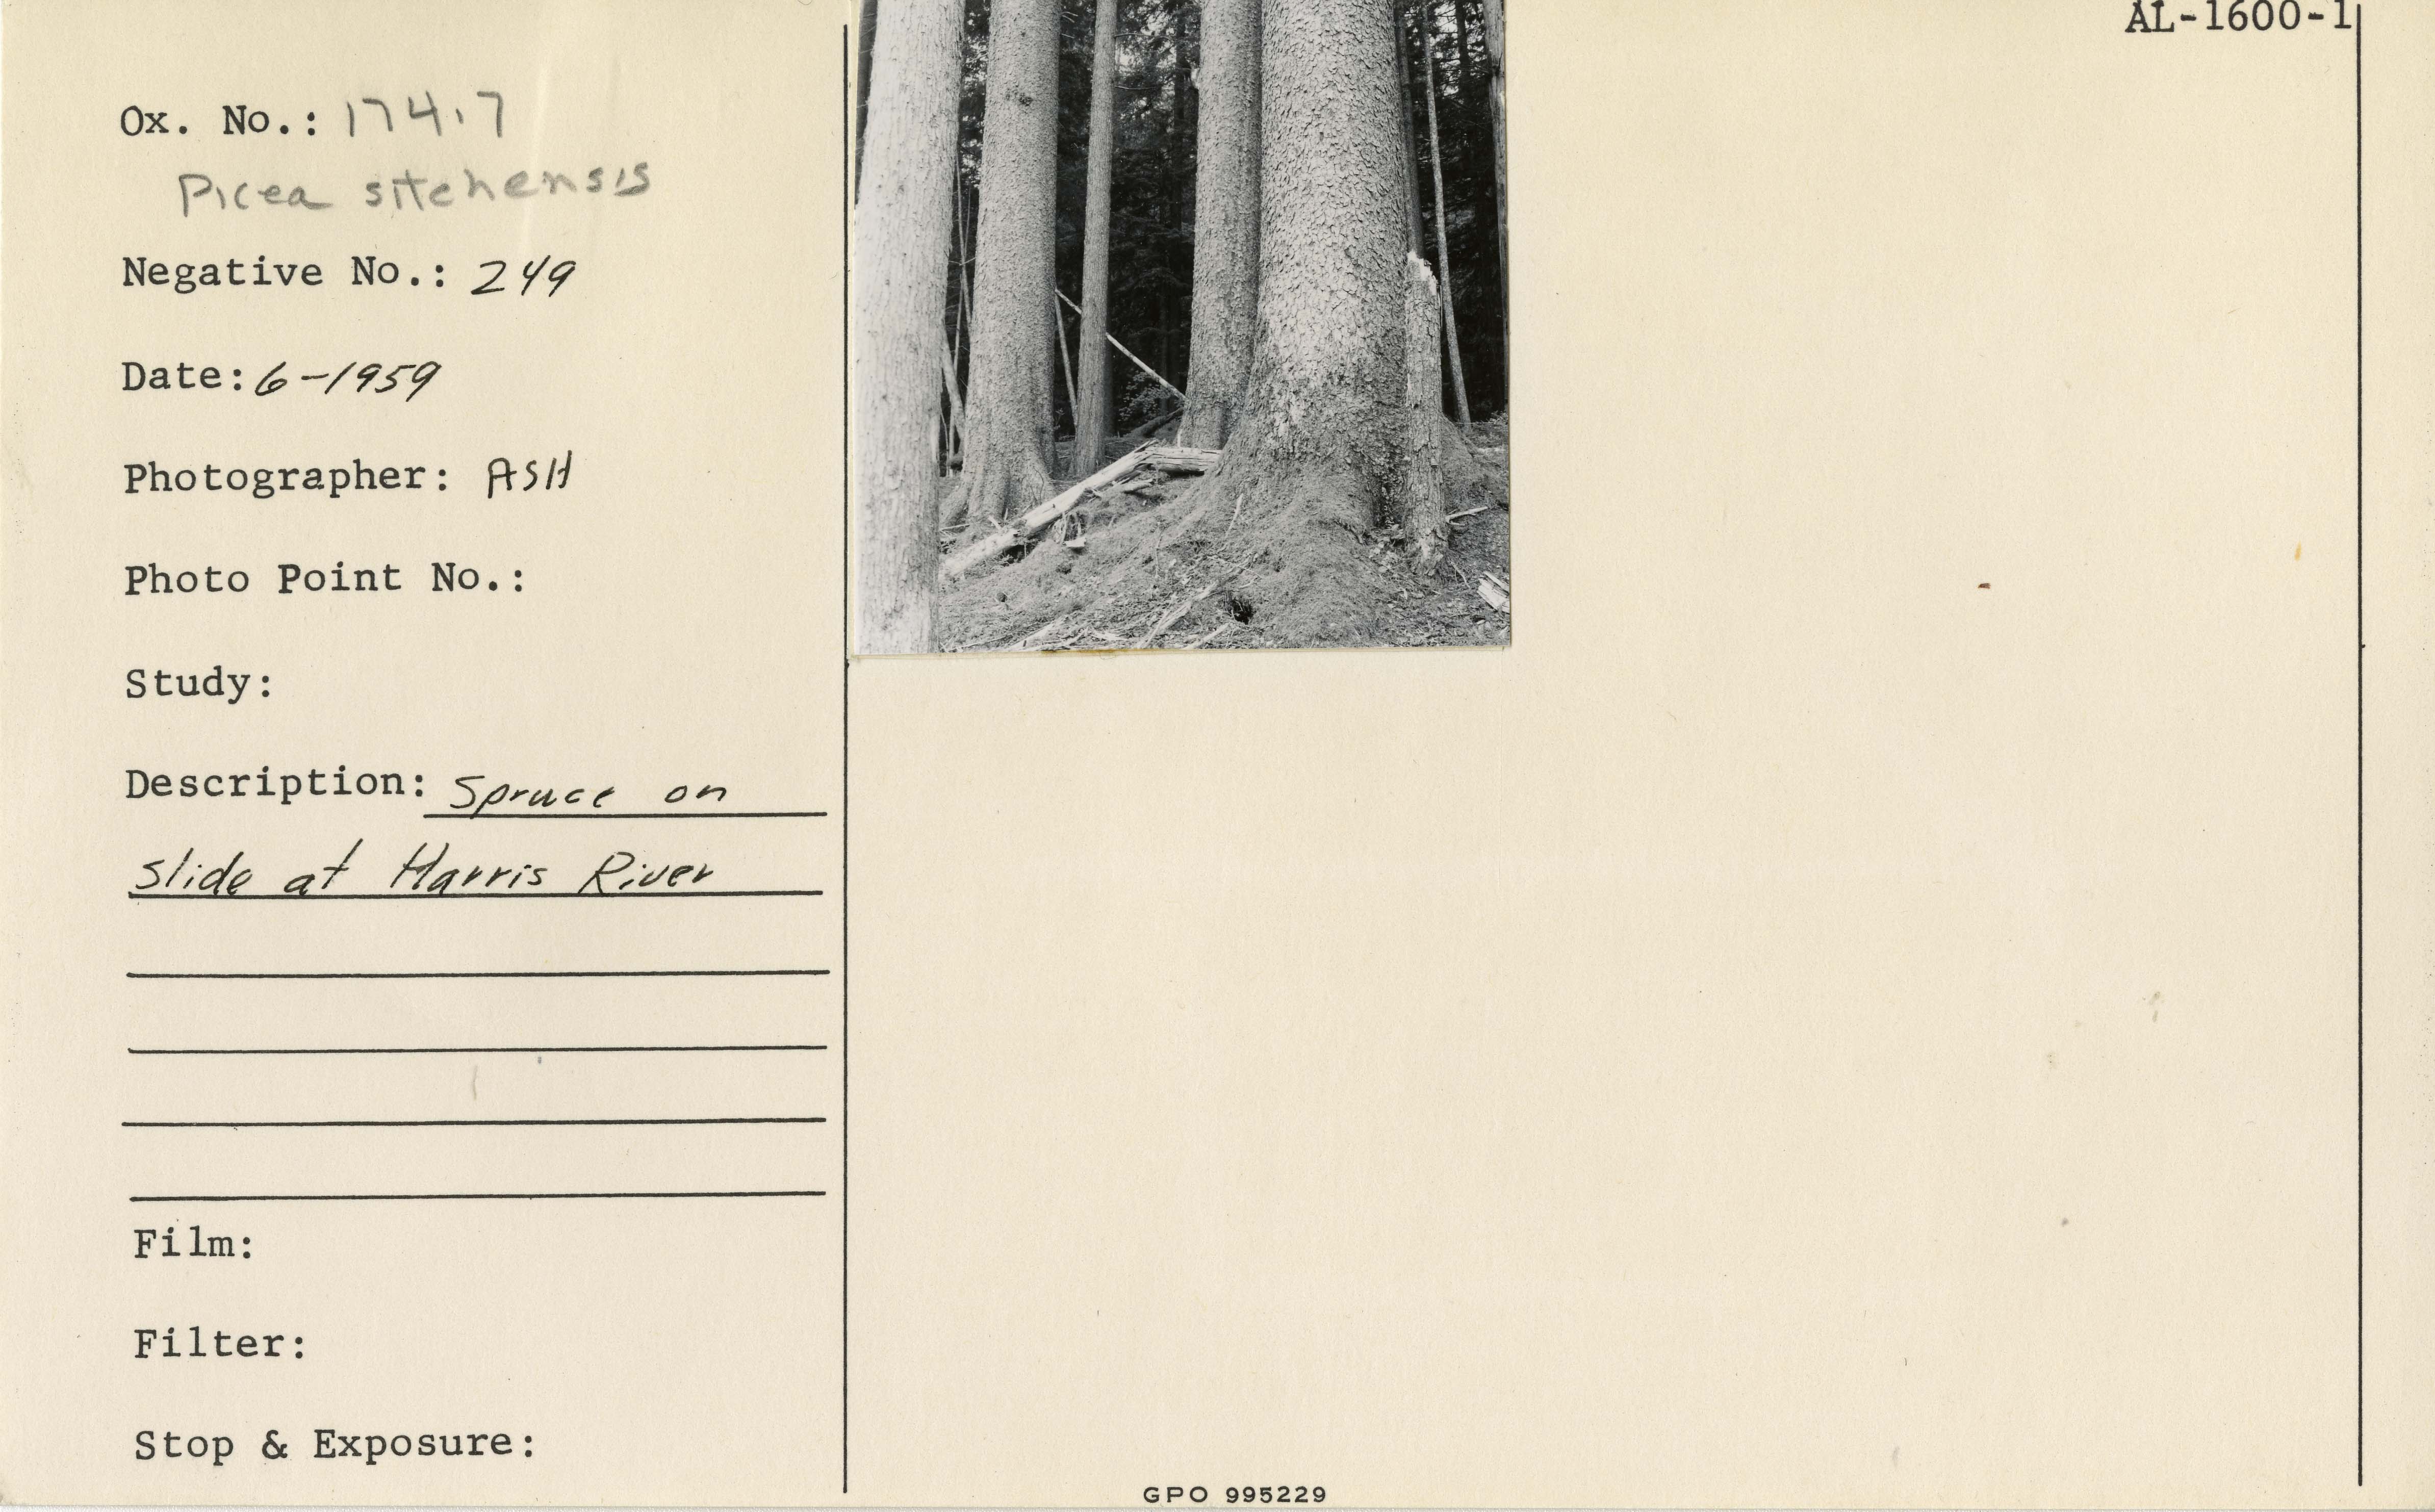 AL-1600-1
Ox. No.: 174.7
Picea sitchensis
Negative No.: 249
Date: 6-1959
Photographer: ASH
Photo Point No.:
Study:
Description: Spruce on
slide at Harris River
Film:
Filter:
Stop & Exposure:
GPO 995229